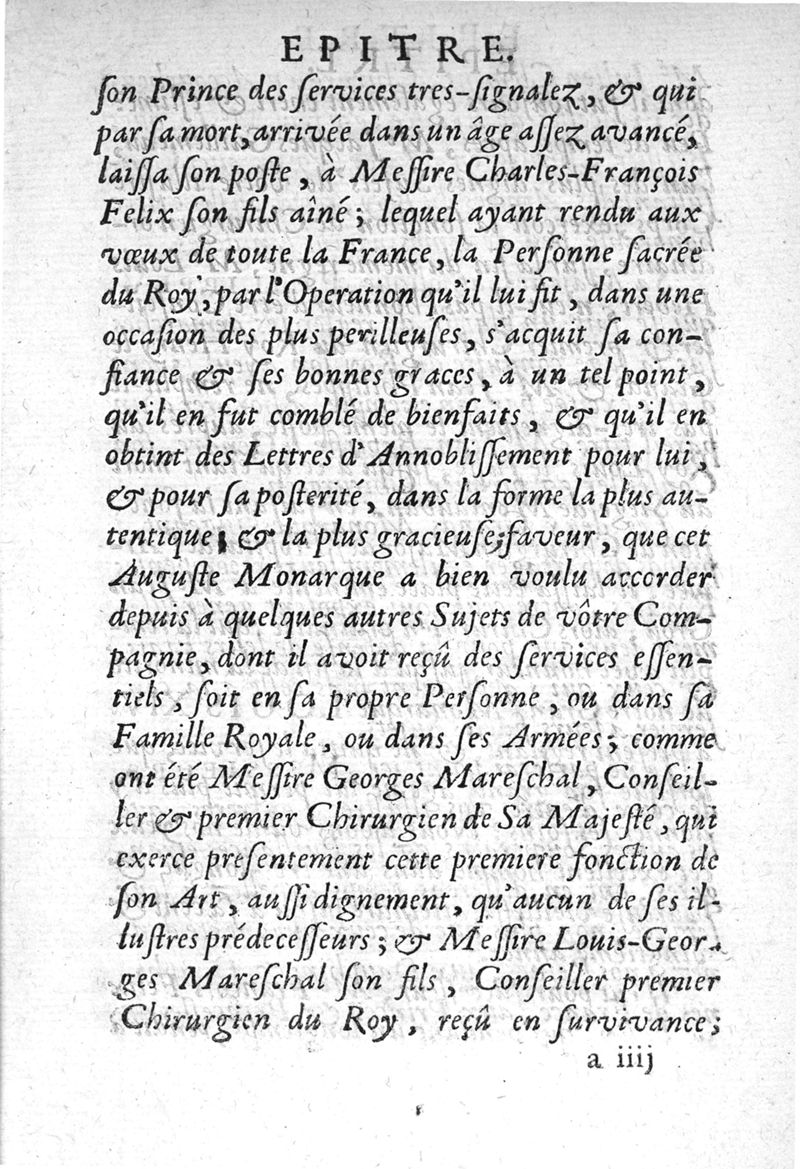 EPITRE.
ſon Prince des ſervices tres-ſignalez, & qui
par ſa mort, arrivée dans un âge aſſez avancé,
laiſſa ſon poſte, à Meſſire Charles-François
Felix ſon fils aîné; lequel ayant rendu aux
vœux de toute la France, la Perſonne ſacrée
du Roy, par l'Operation qu'il lui fit, dans une
occaſion des plus perilleuſes, s'acquit ſa con-
fiance & ſes bonnes graces, à un tel point,
qu'il en fut comblé de bienfaits, & qu'il en
obtint des Lettres d'Annobliſſement pour lui,
& pour ſa poſterité, dans la forme la plus au-
tentique; & la plus gracieuſe; faveur, que cet
Auguſte Monarque a bien voulu accorder
depuis à quelques autres Sujets de vôtre Com-
pagnie, dont il avoit reçû des ſervices eſſen-
tiels, ſoit en ſa propre Perſonne, ou dans ſa
Famille Royale, ou dans ſes Armées; comme
ont été Meſſire Georges Mareſchal, Conſeil-
ler & premier Chirurgien de Sa Majeſté, qui
exerce preſentement cette premiere fonction de
ſon Art, auſſi dignement, qu'aucun de ſes il-
luſtres prédeceſſeurs; & Meſſire Louis-Geor-
ges Mareſchal ſon fils, Conſeiller premier
Chirurgien du Roy, reçû en ſurvivance;
a iiij